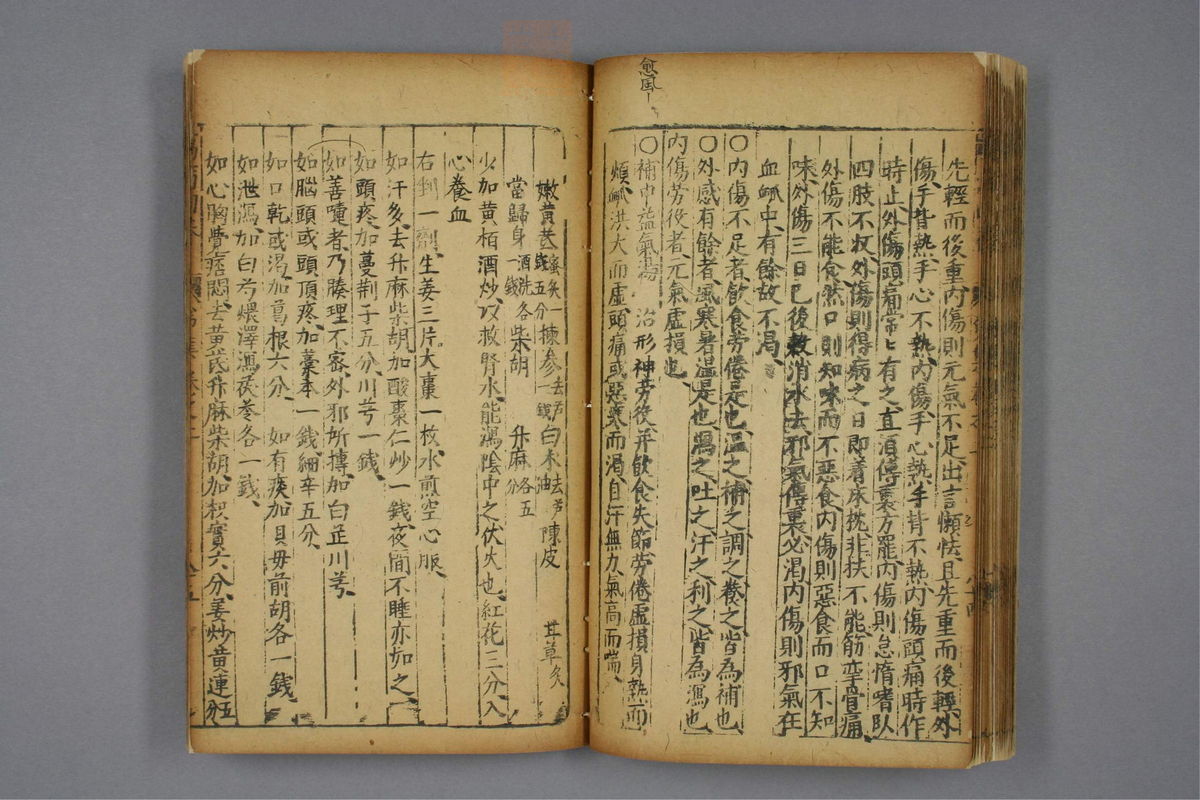 愈風
先輕而後重内傷則元氣不足出言懶怯且先重而後輕外
傷手背熱手心不熱内傷手心熱手背不熱内傷頭痛時作
時止外傷頭痛常〻有之直須傳裏方罷内傷則怠惰嗜臥
四肢不收外傷則得病之日即着床枕非扶不能筋挛骨痛
外傷不能食然口則知味而不惡食内傷則惡食而口不知
味外傷三日已後穀消水去邪氣傳裏必渴内傷則邪氣在
血脉中有餘故不渴
〇内傷不足者飲食劳倦是也温之補之調之養之皆為補也
〇外感有餘者風寒暑温是也瀉之吐之汗之利之皆為瀉也
内傷劳役者元氣虚損也
〇補中益氣湯 治形神劳役并飲食失節劳倦虚損身熱而
煩脉洪大而虚頭痛或惡寒而渴自汗無力氣高而喘
嫩黄芪蜜灸一錢五分 揀參去芦一錢 白术去芦油 陳皮 甘草灸
當歸身酒洗一錢 各 柴胡 升麻各五分
少加黄栢酒炒以救腎水能瀉陰中之伏火也紅花三分入
心養血
右剉一劑生姜三片大棗一枚水煎空心服
如汗多去升麻柴胡加酸棗仁炒一錢夜間不睡亦如之
如頭疼加蔓荆子五分川芎一錢
如善嚏者乃腠理不密外邪所搏加白芷川芎
如腦頭或頭頂疼加藁本一錢細辛五分
如口乾或渴加葛根六分 如有痰加貝毋前胡各一錢
如泄瀉加白芍煨澤瀉茯苓各一錢
如心胸覺痞悶去黄芪升麻柴胡加枳實六分姜炒黄連五分